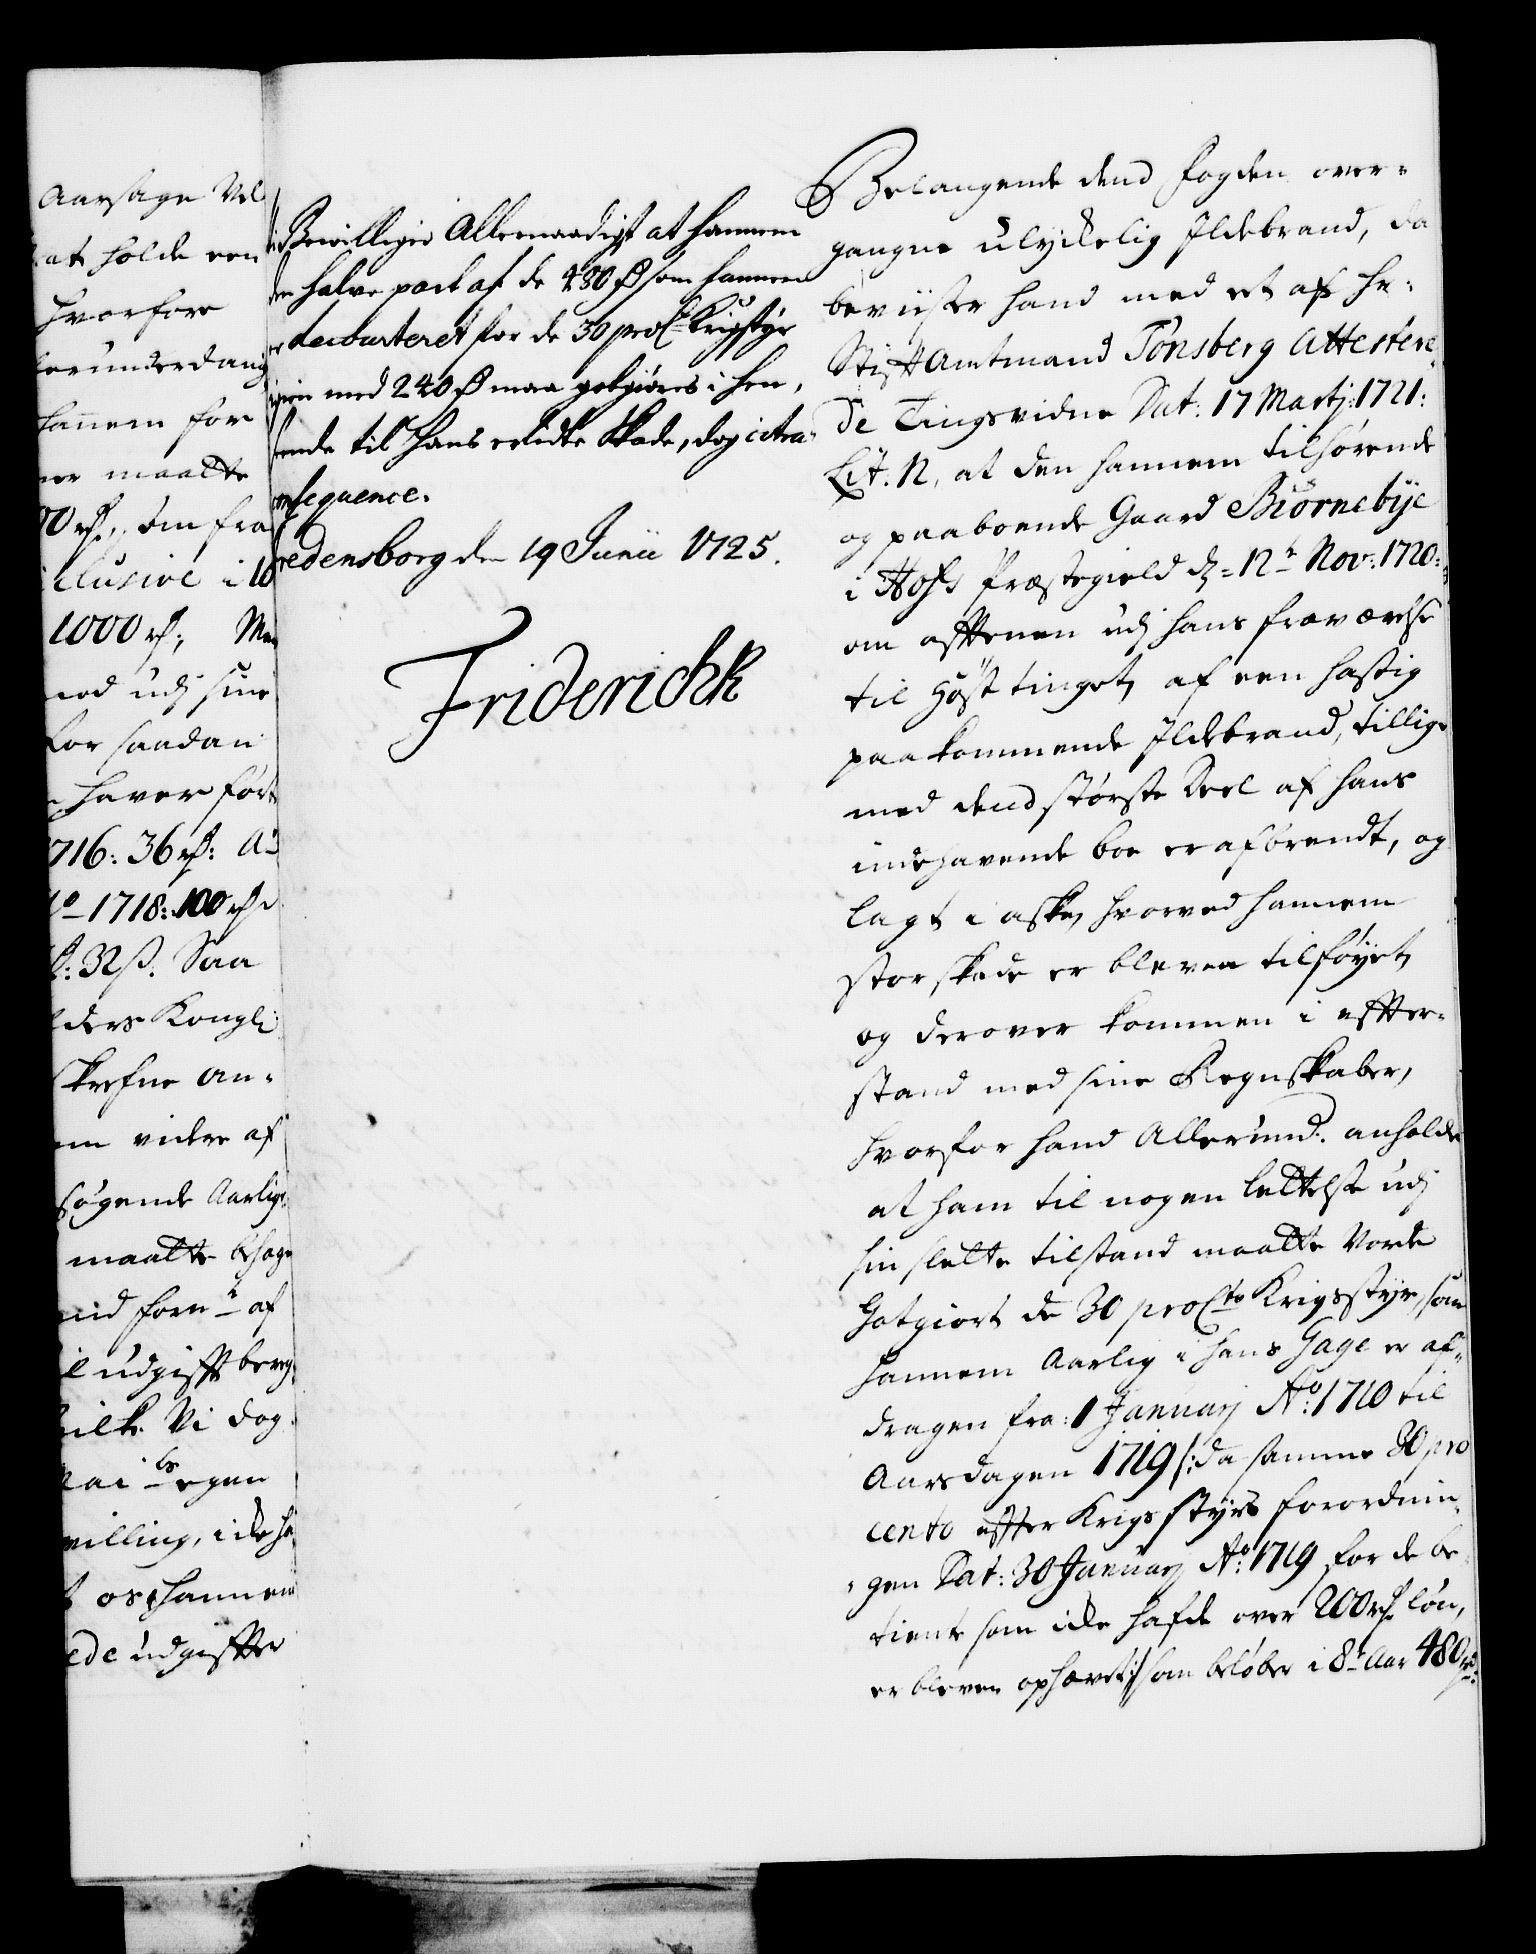 Aarsage Vel
at holde een
hvorfore
lerunderdanig
hannem for
maatte
00 rd., som fra
clusive i 10
1000 rd; Men
med udj sine
for saadan
haver ført
1716: 36 rd: A
Ao 1718: 100 rd
32 s. Saa
lders Kongl:
skrefne an-
videre af
søgende Aarlig
maatte behage
forn: af
udgifft bereg
Vi dog
egen
villing, icke ha
os hannem
ede udgiffter
Bewilliges Allernaadigst at hannem
den halve part af de 480 rd som hannem
er decourteret for de 30 pro Cto Krigsstyr
igien med 240 rd maa gotgiøres i hen,
seende til hans erlidte skade, dog citra
consequence.
Fredensborg den 19 Junii 1725.
Friderichk
Belangende dend Fogden over-
gangne ulyckelig Ildebrand, da
beviiser hand med et af hr:
Stifft Amtmand Tonsberg Attestere
de Tingsvidne Dat: 17 Martj: 1721:
Lit. N, at den hannem tilhørende
og paaboende Gaard Biørnebÿe
i Hofs Præstegield d: 12t Nov: 1720:
om afftenen udj hans fraværelse
til Høst tinget, af een hastig
paakommende Ildebrand, tillige
med dend største Deel af hans
indehavende boe er afbrendt, og
lagt i aske, hvorved hannem
stor skade er bleven tilføyet,
og derover kommen i effter-
stand med sine Regnskaber,
hvorfor hand Allerund: anholder
at ham til nogen lettelse udj
sin slette tilstand maatte vorde
Gotgiort de 30 pro Cto Krigsstyr, som
hannem Aarlig i hans Gage er af-
dragen fra: 1 Januarj Ao: 1710 til
Aarsdagen 1719 /: da samme 30 pro
cento effter Krigs styrs forordnin-
gen Dat: 30 Januarj Ao: 1719 for de be
tiente som icke hafde over 200 rd løn,
er bleven ophævet :/ som beløber i 8t Aar 480 rd: